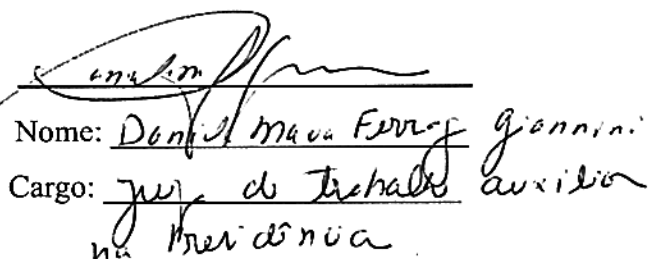 Nome: Daniela Maria Ferraz Giannini
Cargo: Juíza do trabalho auxiliar
na Presidência